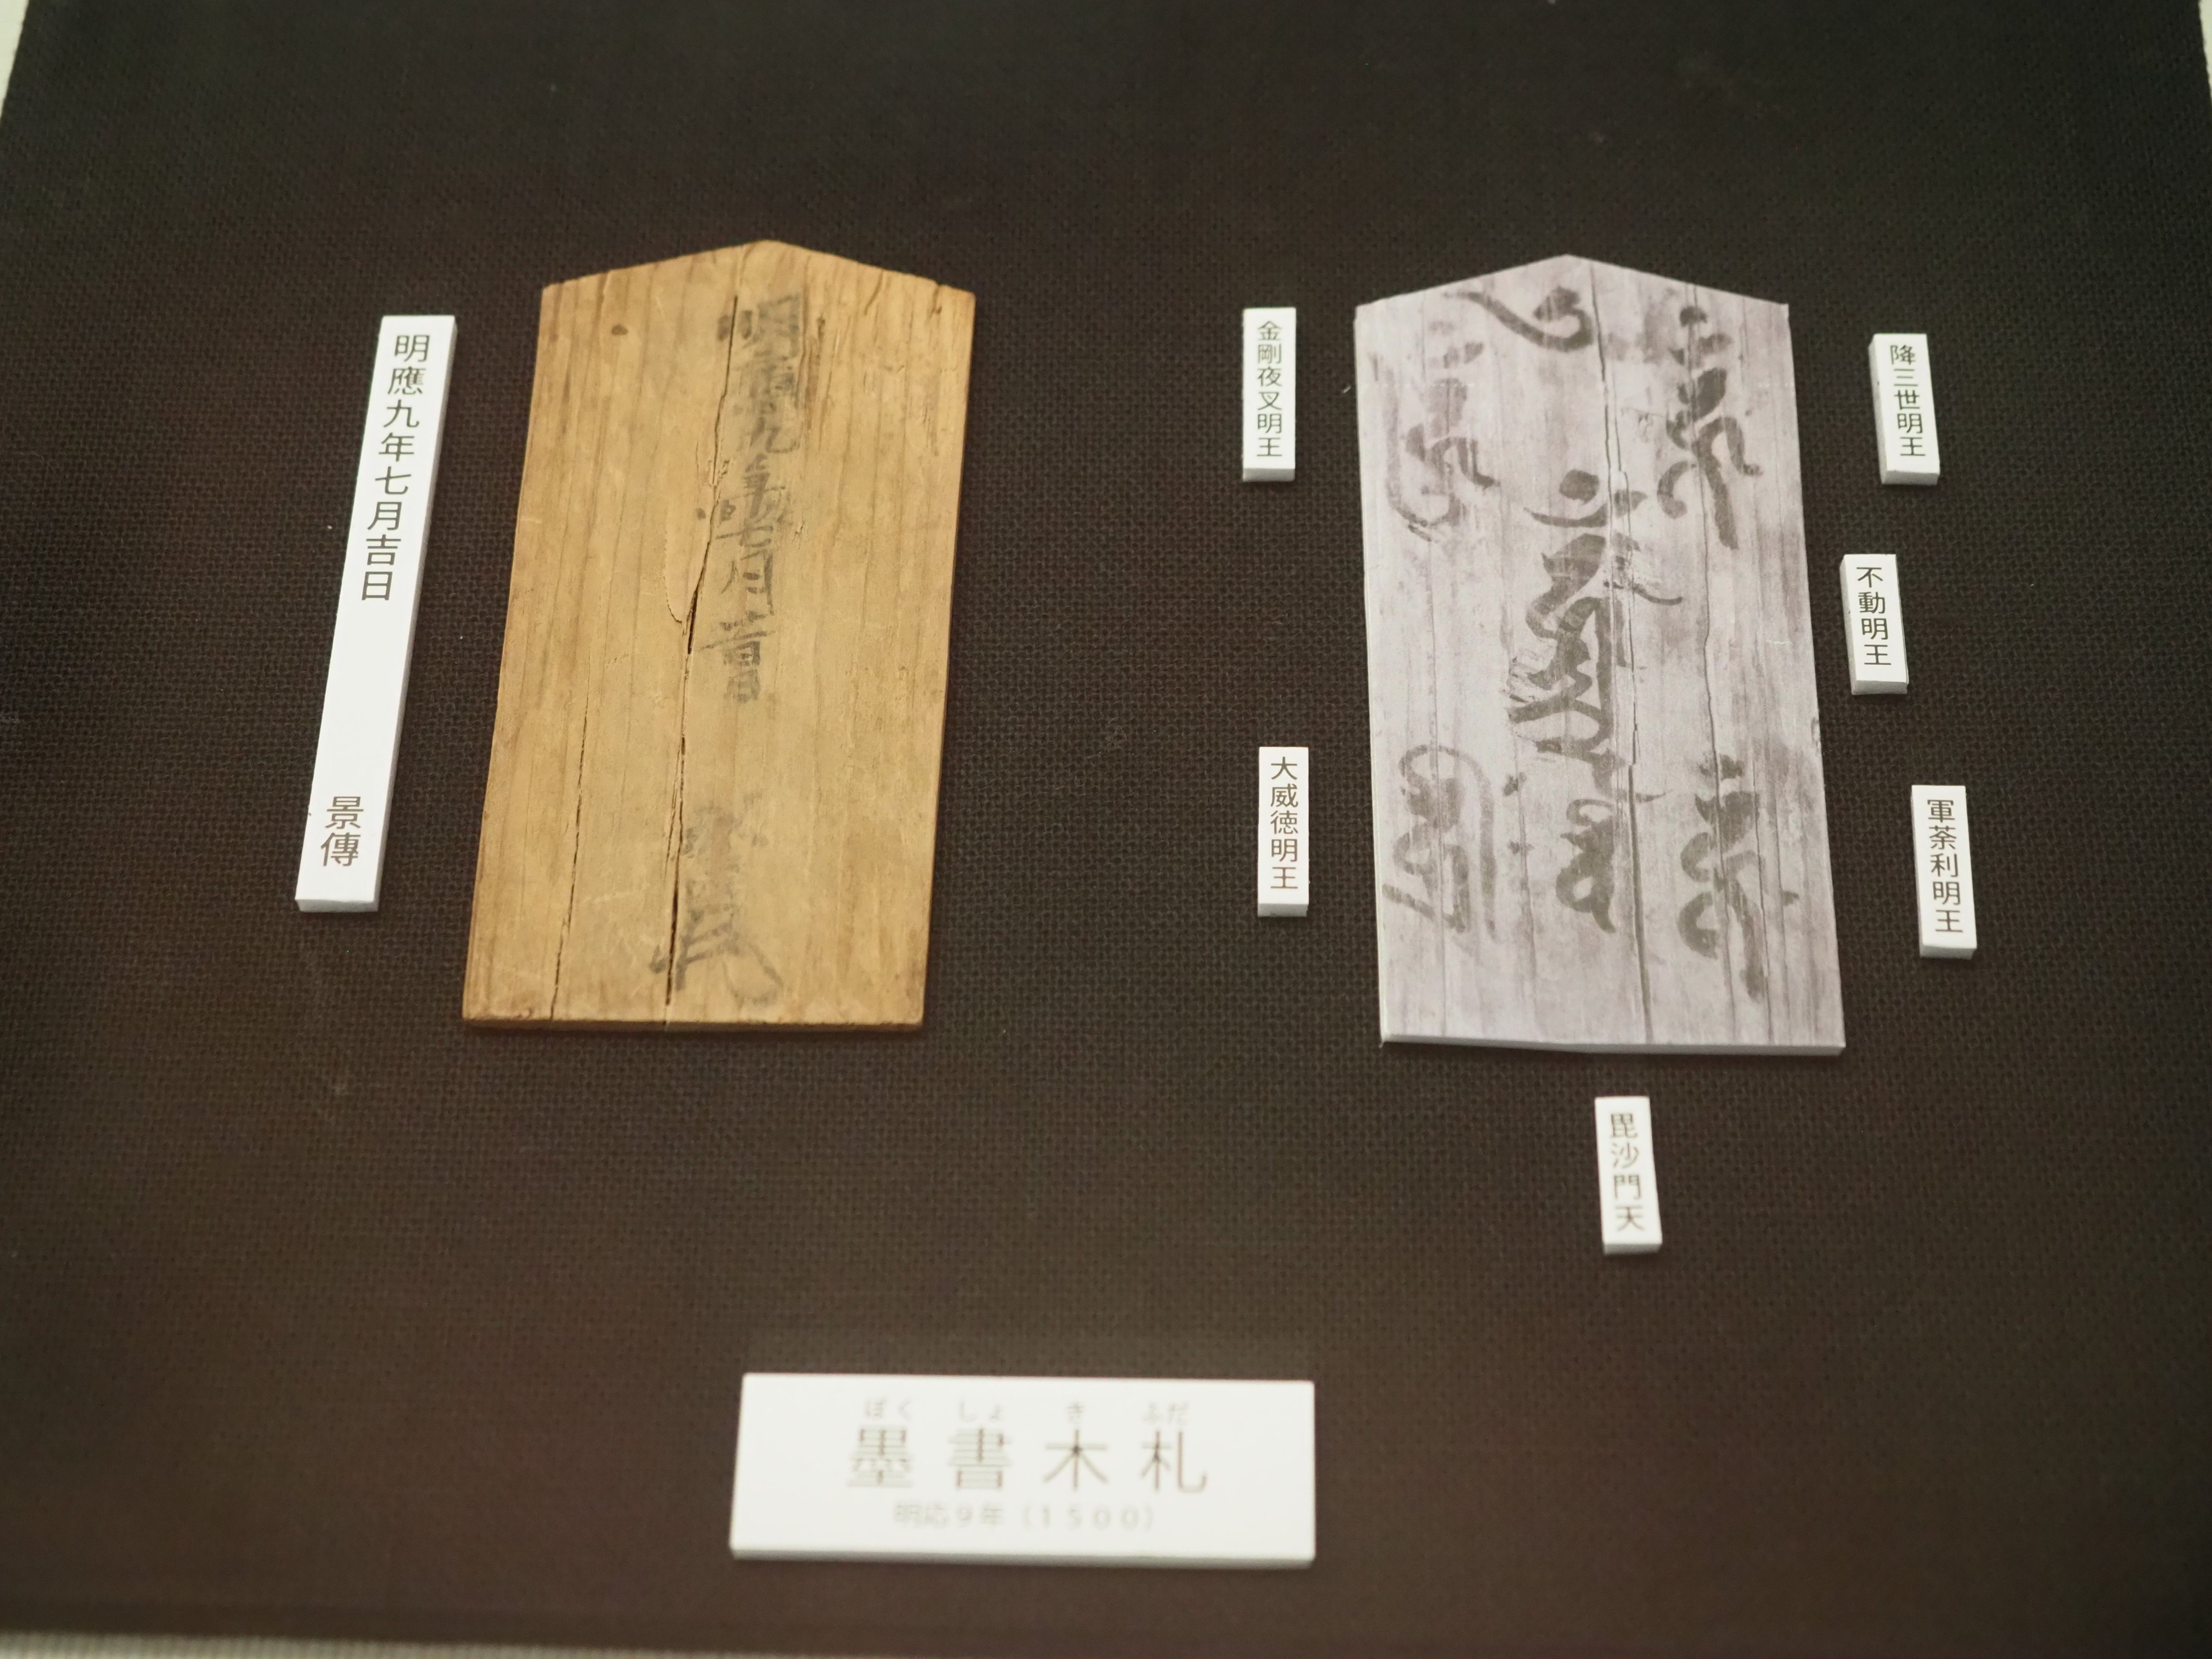 明應九年七月吉日　景傳
明應九年七月吉日
金剛夜叉明王
降三世明王
不動明王
大威徳明王
軍荼利明王
毘沙門天
ぼくしょきふだ
墨書木札
明応９年（１５００）